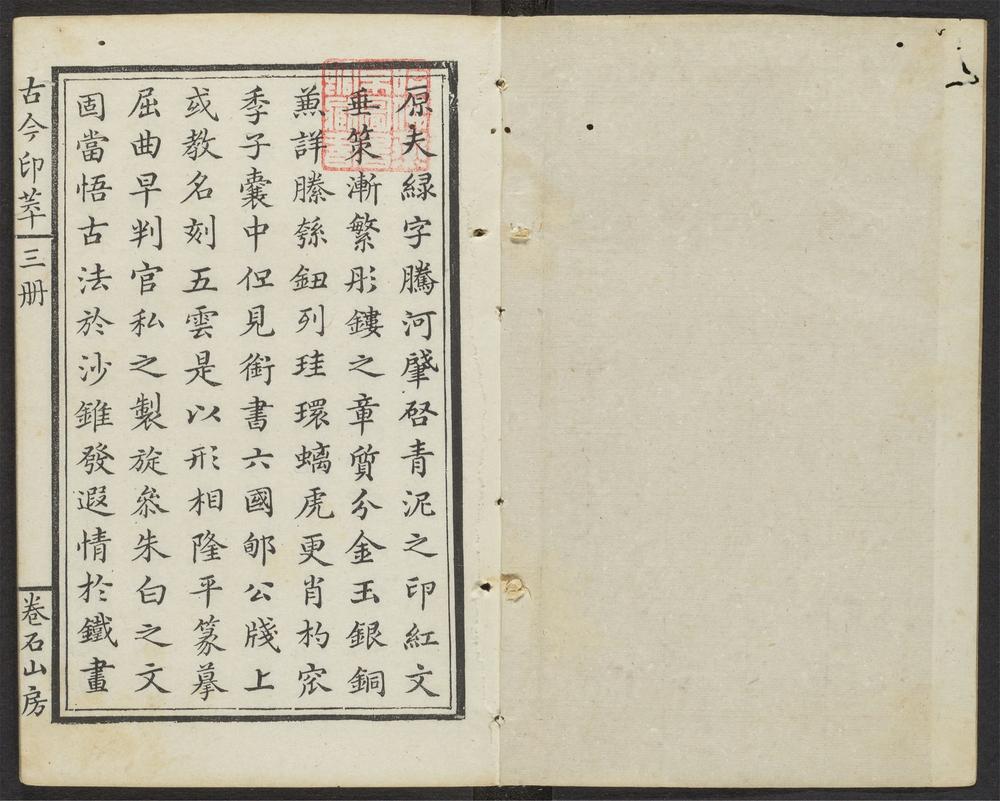 原夫緑字騰河肇啓青泥之印紅文
垂策漸繁彤鏤之章質分金玉銀銅
蕪詳滕緜鈕列珪環螭虎更肖杓窊
季子囊中但見銜書六國郇公牋上
或教名刻五雲是以形相隆平篆摹
屈曲早判官私之製旋叅朱白之文
固當悟古法於沙錐發遐情於鐵畫
古今印萃 三册
卷石山房